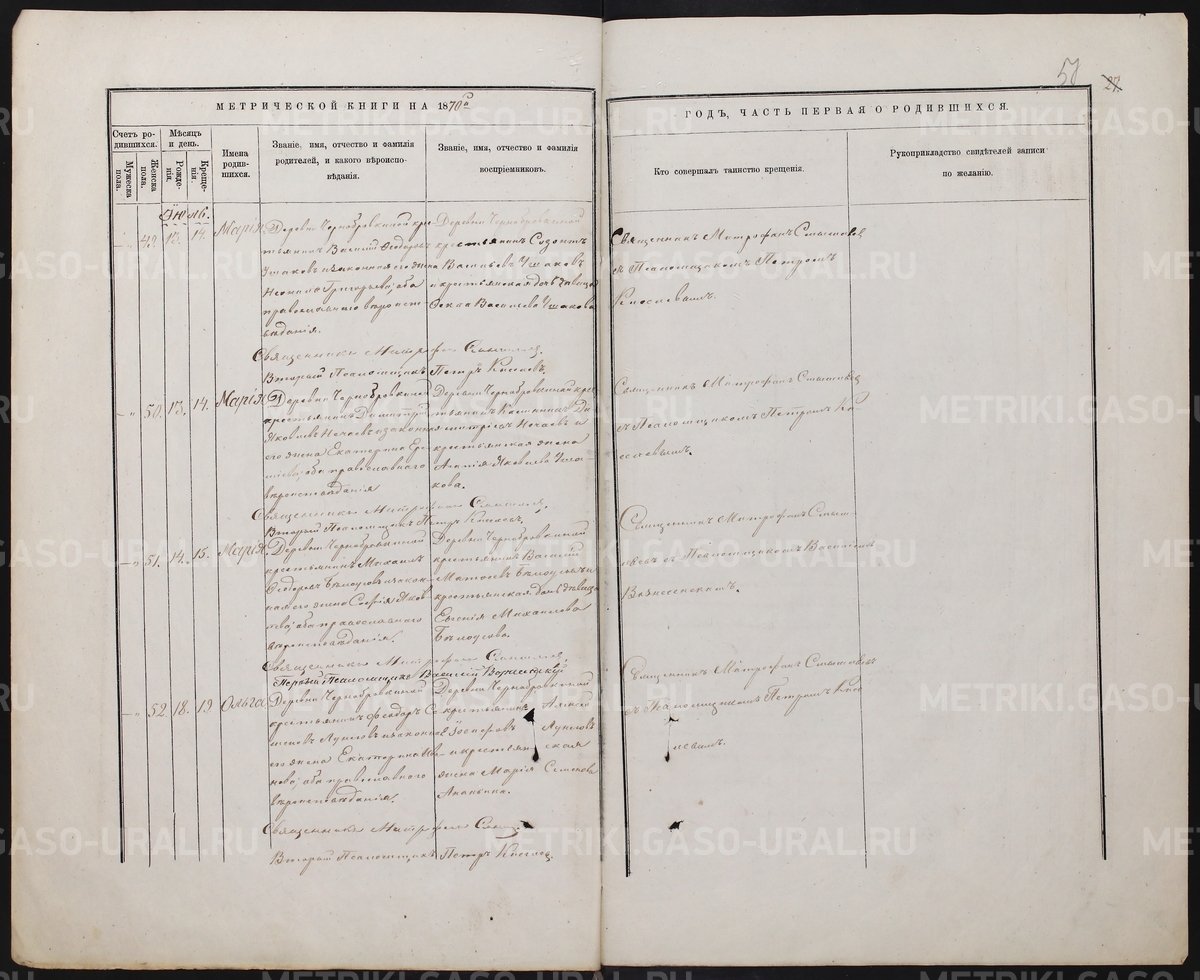 51
27
МЕТРИЧЕСКОЙ КНИГИ НА 1870й
ГОДЪ, ЧАСТЬ ПЕРВАЯ О РОДИВШИХСЯ.
Счетъ ро-
дившихся.
Мужеска
пола.
Женска
пола.
Мѣсяцъ
и день.
Рожде-
нія.
Креще-
нія.
Имена
родив-
шихся.
Званіе, имя, отчество и фамилія
родителей, и какого вѣроиспо-
вѣданія.
Званіе, имя, отчество и фамилія
воспріемниковъ.
Кто совершалъ таинство крещенія.
Рукоприкладство свидѣтелей записи
по желанію.
Іюль.
49. 13. 14. Марія
Деревни Чернобровкиной кре-
стьянинъ Василій Ѳеодоровъ
Ушаковъ и законная его жена
Григорьева, оба
православнаго вѣроиспо-
вѣданія.
Деревни Чернобровкиной
крестьянинъ Созонтъ
Васильевъ Ушаковъ
и крестьянская дочь дѣвица
Васильева Ушакова
Священникъ Митрофанъ
съ Псаломщикомъ Петромъ
Киселевымъ.
Священникъ Митрофанъ
Вторый Псаломщикъ Петръ Киселевъ.
50. 13. 14. Марія
Деревни Чернобровкиной
крестьянинъ Димитрій
Яковлевъ и законная
его жена Екатерина
оба православнаго
вѣроисповѣданія
Деревни Чернобровкиной кре-
стьянинъ
и
крестьянская жена
Яковлева Уша-
кова.
Священникъ Митрофанъ
съ Псаломщикомъ Петромъ Ки-
селевымъ.
Священникъ Митрофанъ
Вторый Псаломщикъ Петръ Киселевъ.
51. 14. 15. Марія
Деревни Чернобровкиной
крестьянинъ Михаилъ
Ѳеодоровъ Бѣлоусовъ и закон-
ная его жена Софія Яков-
лева, оба православнаго
вѣроисповѣданія.
Деревни Чернобровкиной
крестьянинъ Василій
Бѣлоусовъ и
крестьянская дочь дѣвица
Евгенія Михаилова
Бѣлоусова.
Священникъ Митрофанъ
съ Псаломщикомъ Василіемъ
Вознесенскимъ.
Священникъ Митрофанъ
Первый Псаломщикъ Василій Вознесенскій
52. 18. 19 Ольга
Деревни Чернобровкиной
крестьянинъ Ѳеодоръ Се-
и законная
его жена Екатерина
оба православнаго
вѣроисповѣданія.
Деревни Чернобровкиной
крестьянинъ Алексѣй
Іосифовъ
и крестьянская
жена Марія Семенова
Ананьина.
Священникъ Митрофанъ
съ Псаломщикомъ Петромъ Кисе-
левымъ.
Священникъ Митрофанъ
Вторый Псаломщикъ Петръ Киселевъ.
METRIKI.GASO-URAL.RU